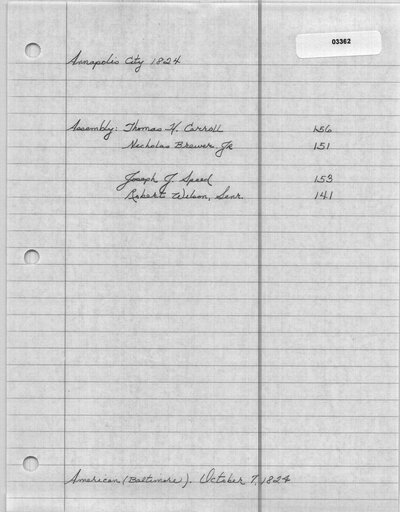 03362
Annapolis City 1824
Assembly: Thomas H. Carroll 156
Nicholas Brewer, Jr 151
Joseph J. Speed 153
Robert Wilson, Senr. 141
American (Baltimore). October 7, 1824